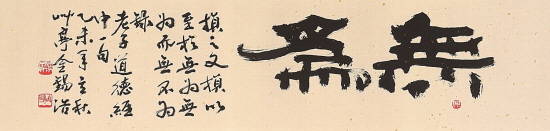 無為
損之又損以
至於無為無
為而無不為
錄
老子道德經
中一句
乙未年立秋
艸亭金錫